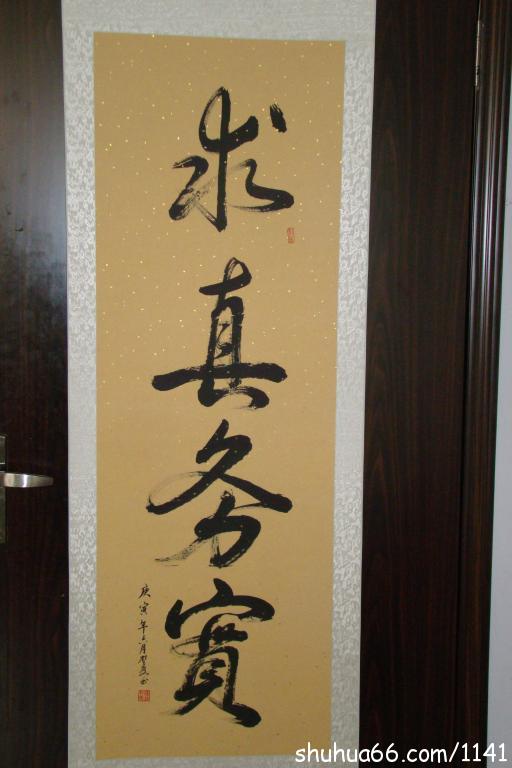 求真务實
庚寅年六月
shuhua66.com/1141